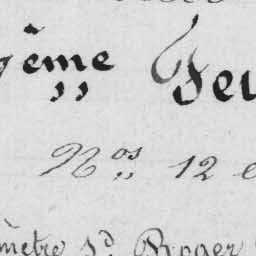 ème Feu
Nos 12 e
mètre sd. Roger